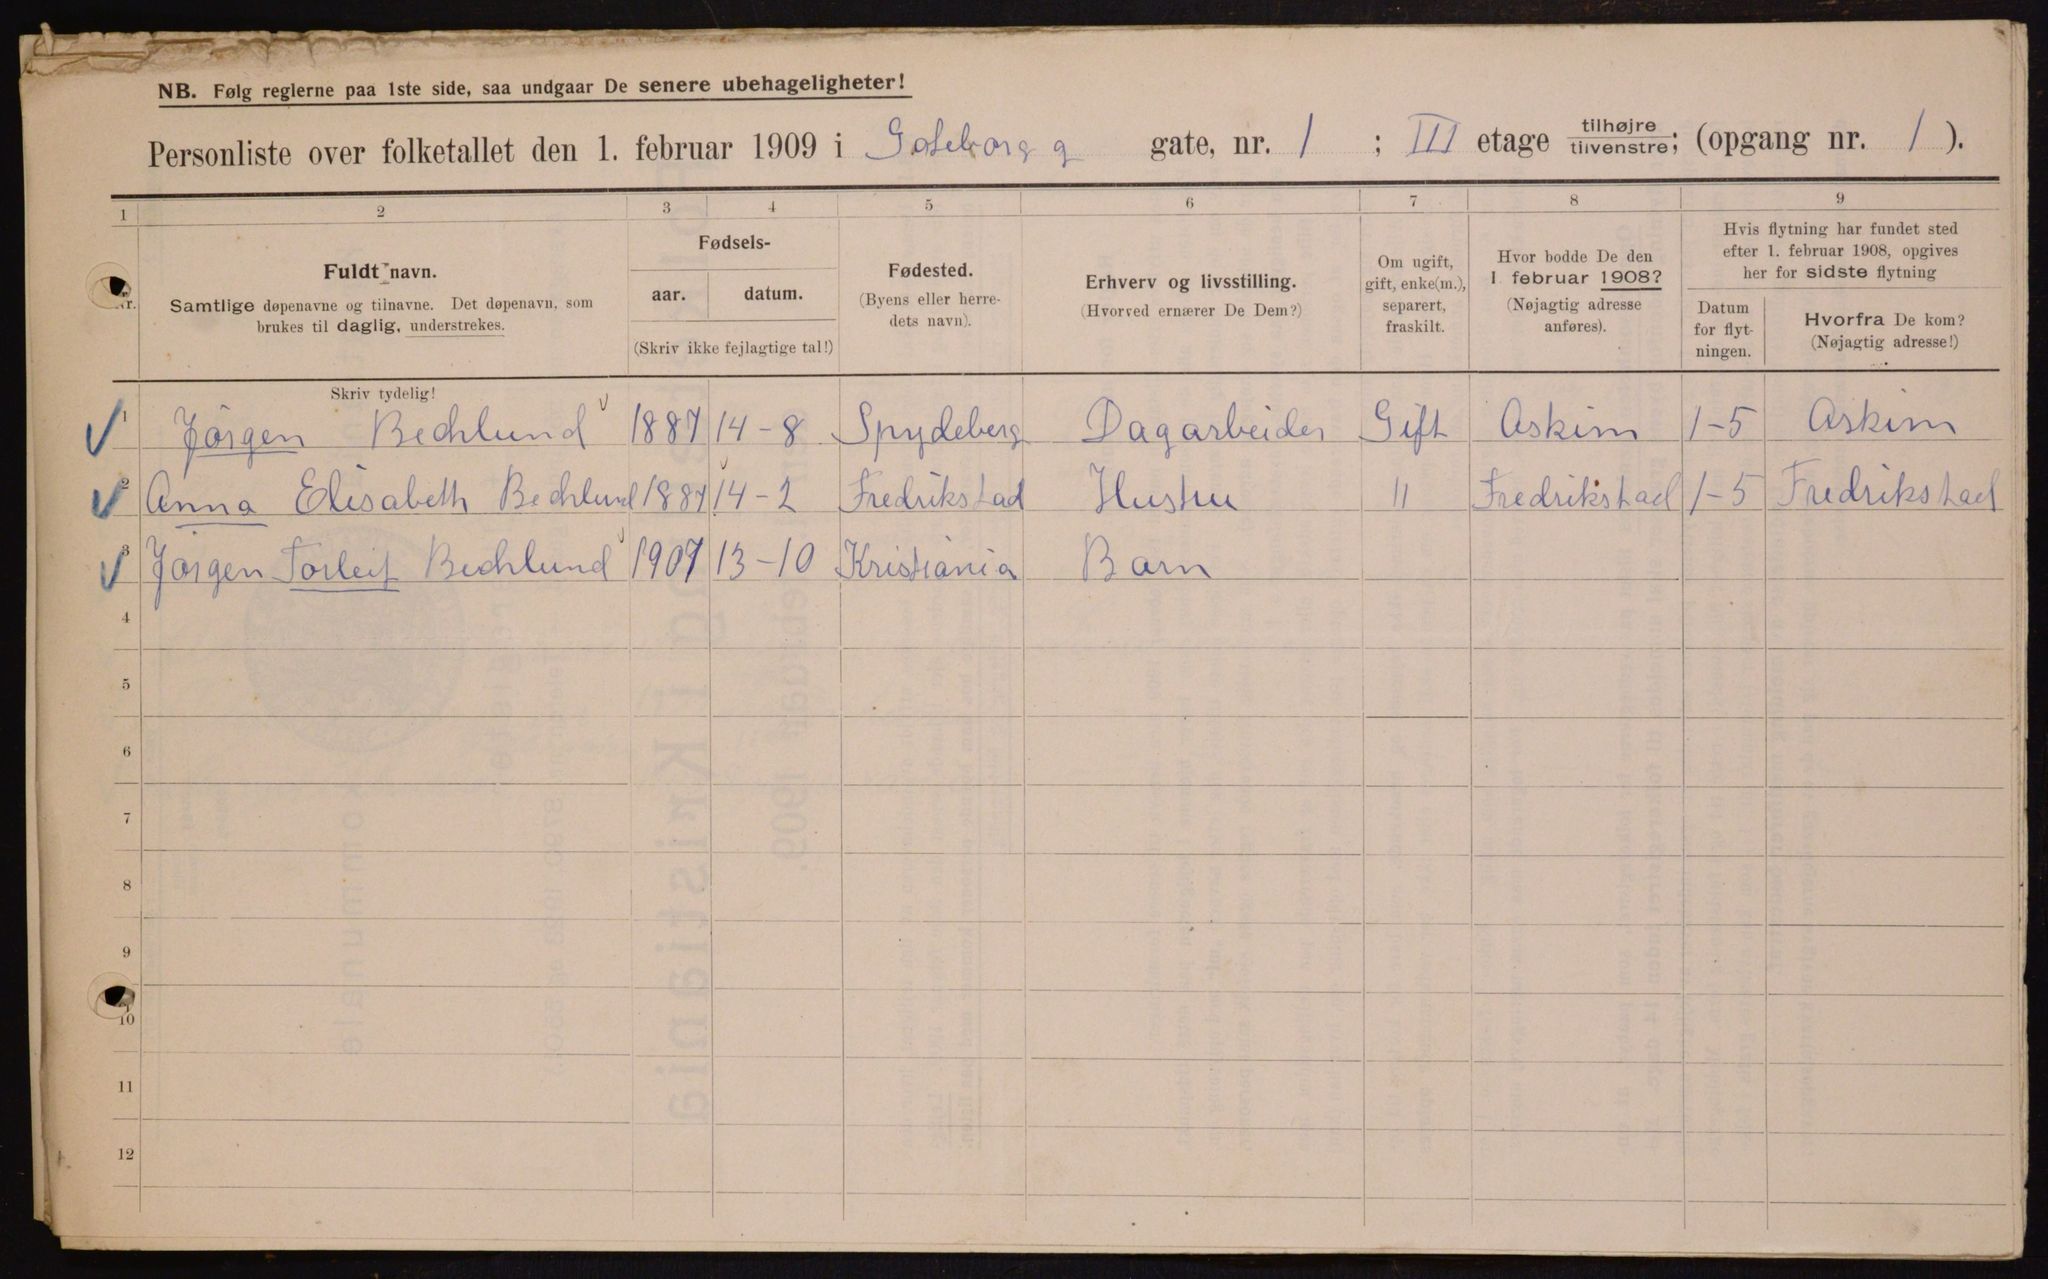 NB. Følg reglerne paa 1ste side, saa undgaar De senere ubehageligheter!
Personliste over folketallet den 1. februar 1909 i Goteborg g gate, nr. 1 ; III etage tilhøjre tilvenstre; (opgang nr. 1 ).
1 2 3 4 5 6 7 8 9
Nr.
Fuldt navn.
Samtlige døpenavne og tilnavne. Det døpenavn, som
brukes til daglig, understrekes.
Skriv tydelig!
Fødsels-
aar. datum.
(Skriv ikke fejlagtige tal!)
Fødested.
(Byens eller herre-
dets navn).
Erhverv og livsstilling.
(Hvorved ernærer De Dem?)
Om ugift,
gift, enke(m.),
separert,
fraskilt.
Hvor bodde De den
1. februar 1908?
(Nøjagtig adresse
anføres).
Hvis flytning har fundet sted
efter 1. februar 1908, opgives
her for sidste flytning
Datum
for flyt-
ningen.
Hvorfra De kom?
(Nøjagtig adresse!)
1 Jørgen Bechlund 1887 14-8 Spydeberg Dagarbeider Gift Askim 1-5 Askim
2 Anna Elisabeth Bechlund 1887 14-2 Fredrikstad Hustru " Fredrikstad 1-5 Fredrikstad
3 Jørgen Torleif Bechlund 1907 13-10 Kristiania Barn
4
5
6
7
8
9
10
11
12